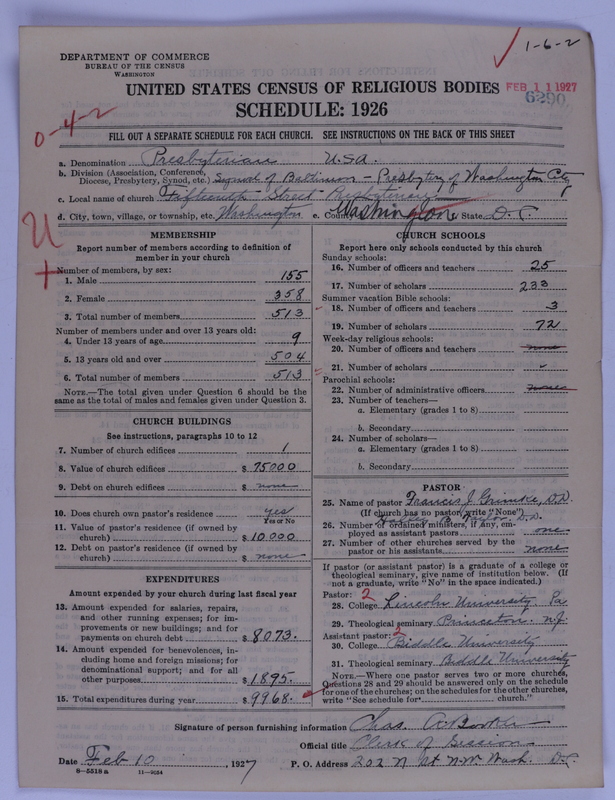 1-6-2
DEPARTMENT OF COMMERCE
BUREAU OF THE CENSUS
WASHINGTON
UNITED STATES CENSUS OF RELIGIOUS BODIES
FEB 11 1927
6290
SCHEDULE: 1926
0-4-2
FILL OUT A SEPARATE SCHEDULE FOR EACH CHURCH. SEE INSTRUCTIONS ON THE BACK OF THIS SHEET
a. Denomination Presbyterian U.S.A.
b. Division (Association, Conference, Diocese, Presbytery, Synod, etc.) Synod of Baltimore - Presbytery of Washington City
c. Local name of church Fifteenth Street Presbyterian
d. City, town, village, or township, etc. Washington e. County Washington f. State D.C.
U
MEMBERSHIP
Report number of members according to definition of
member in your church
Number of members, by sex:
1. Male 155
2. Female 358
3. Total number of members 513
Number of members under and over 13 years old:
4. Under 13 years of age 9
5. 13 years old and over 504
6. Total number of members 513
NOTE.—The total given under Question 6 should be
same as the total of males and females given under Question 3.
CHURCH BUILDINGS
See instructions, paragraphs 10 to 12
7. Number of church edifices 1
8. Value of church edifices $ 75000
9. Debt on church edifices $ none
10. Does church own pastor's residence yes
Yes or No
11. Value of pastor's residence (if owned by
church) $ 10,000
12. Debt on pastor's residence (if owned by
church) $ none
EXPENDITURES
Amount expended by your church during last fiscal year
13. Amount expended for salaries, repairs,
and other running expenses; for im-
provements or new buildings; and for
payments on church debt $ 8073.
14. Amount expended for benevolences, in-
cluding home and foreign missions; for
denominational support; and for all
other purposes $ 1895.
15. Total expenditures during year $ 9968.
CHURCH SCHOOLS
Report here only schools conducted by this church
Sunday schools:
16. Number of officers and teachers 25
17. Number of scholars 233
Summer vacation Bible schools:
18. Number of officers and teachers 3
19. Number of scholars 72
Week-day religious schools:
20. Number of officers and teachers none
21. Number of scholars -
Parochial schools:
22. Number of administrative officers none
23. Number of teachers—
a. Elementary (grades 1 to 8)
b. Secondary
24. Number of scholars—
a. Elementary (grades 1 to 8)
b. Secondary
PASTOR
25. Name of pastor Francis J. Grimke, D.D.
(If church has no pastor, write "None")
D.D.
26. Number of ordained ministers, if any, em-
ployed as assistant pastors one
27. Number of other churches served by the
pastor or his assistants none
If pastor (or assistant pastor) is a graduate of a college or
theological seminary, give name of institution below. (If
not a graduate, write "No" in the space indicated.)
Pastor: 2
28. College Lincoln University Pa
29. Theological seminary Princeton N.J.
Assistant pastor: 2
30. College Biddle University
31. Theological seminary Biddle University
NOTE.—Where one pastor serves two or more churches,
Questions 28 and 29 should be answered only on the schedule
for one of the churches; on the schedules for the other churches,
write "See schedule for church."
Signature of person furnishing information Chas.
Official title Clerk of Session
Date Feb 10, 1927 P. O. Address 202 N St N.W. Wash. D.C.
8—5518 a 11—9054